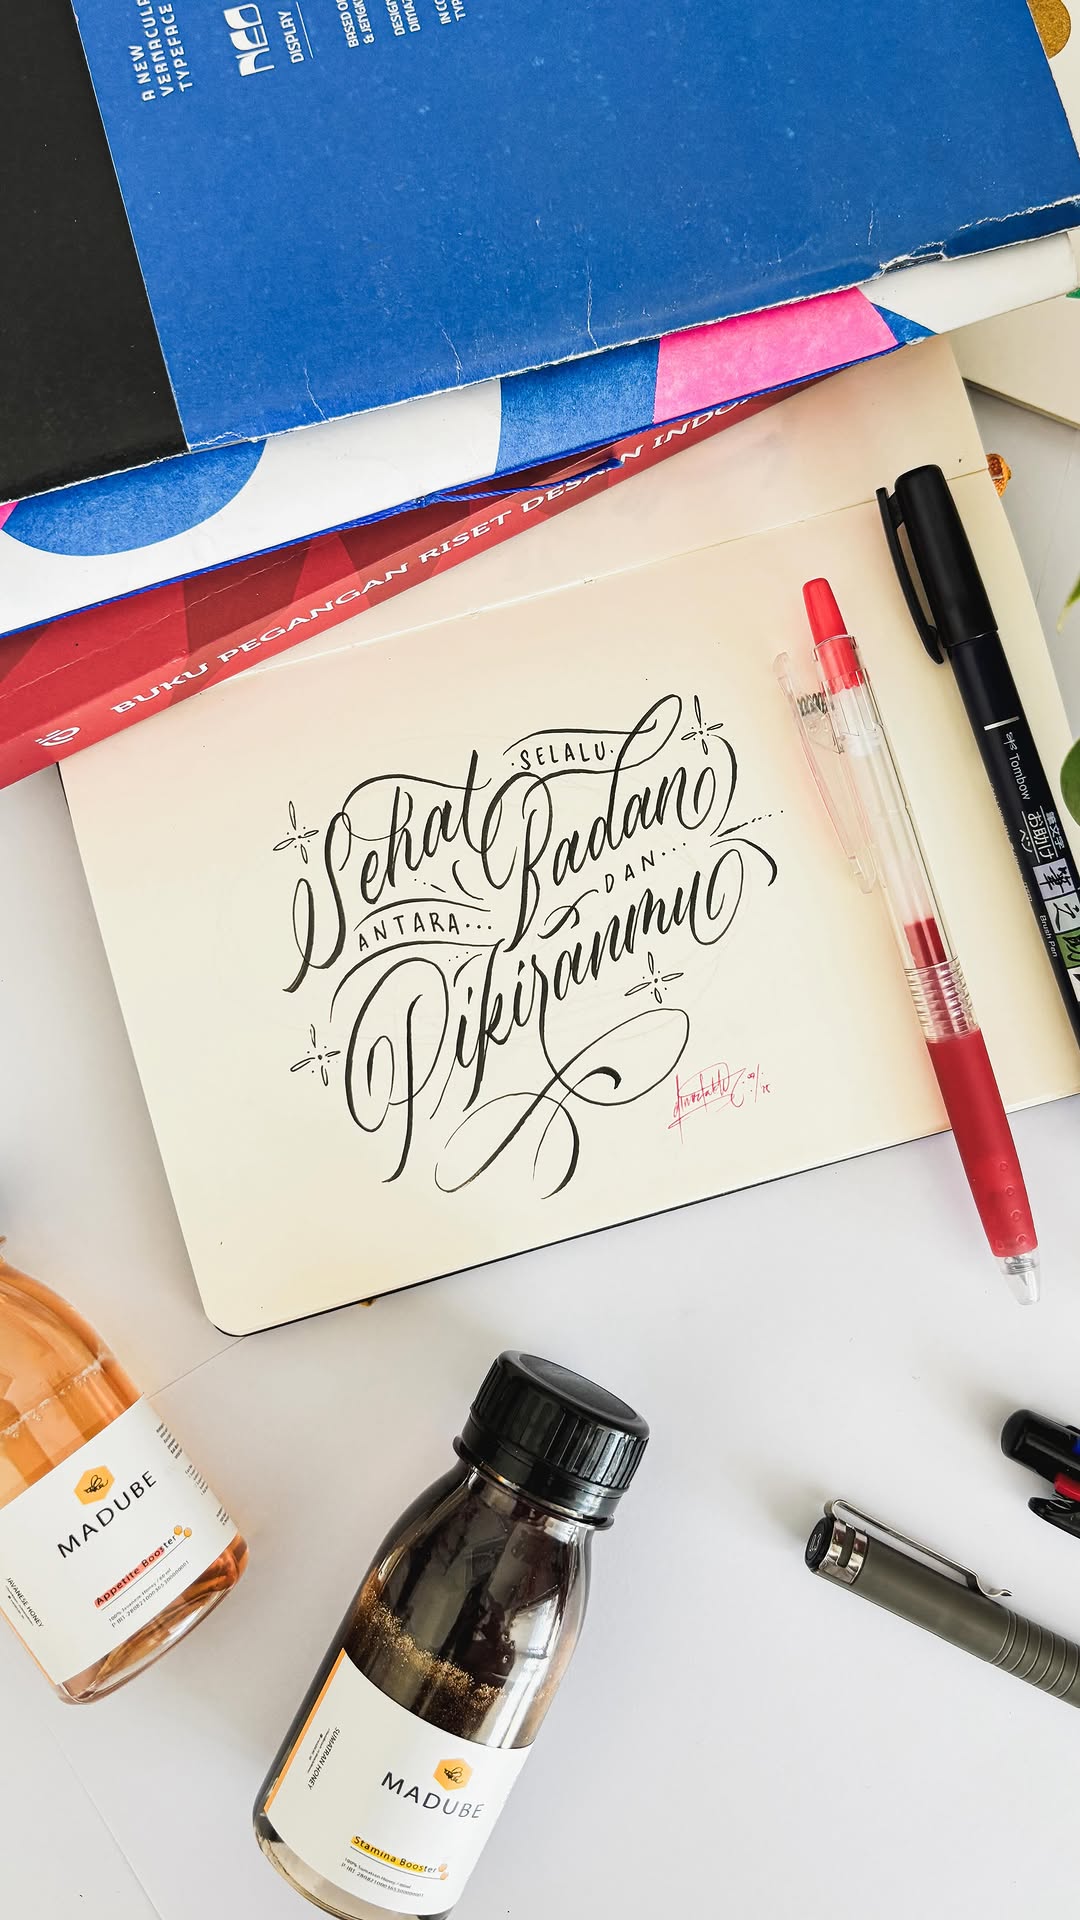 A NEW
VERNACULAR
TYPEFACE
NEO
DISPLAY
BASED O
& JENGK
DESIGN
IN CO
TYP
BUKU PEGANGAN RISET DESAIN INDO
SELALU
Sehat Badan
ANTARA... DAN...
Pikiranmu
Tombow
筆文字
お助け
ペン
筆之助
Brush Pen
MADUBE
Appetite Booster
JAVANESE HONEY
MADUBE
Stamina Booster
100% Sumatran Honey
SUMATRAN HONEY